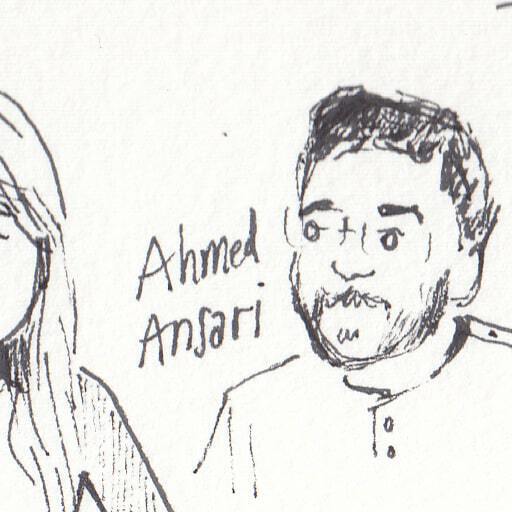 Ahmed
Ansari